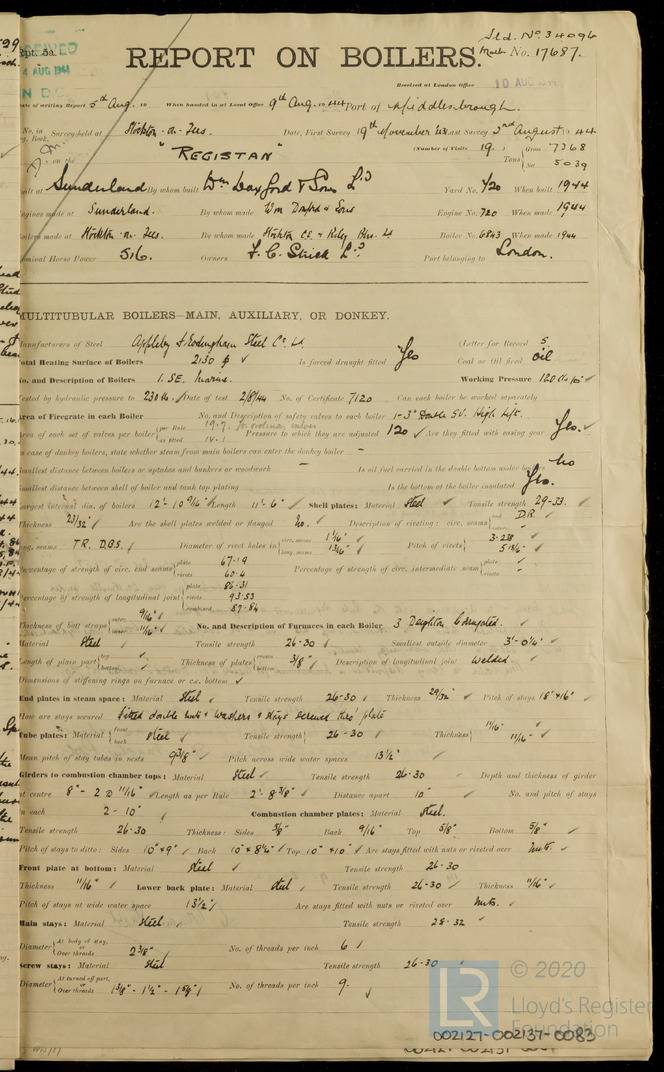 Rpt. 5a.
Sld. No. 34096
Mach No. 17687.
REPORT ON BOILERS.
4 AUG 1944
Received at London Office 10 AUG
Date of writing Report 5th Aug. 19 When handed in at Local Office 9th Aug. 1944 Port of Middlesbrough.
No. in Reg. Book. Survey held at Stockton-on-Tees. Date, First Survey 19th November '43 Last Survey 2nd August 1944
on the "REGISTAN" (Number of Visits 19.) Tons Gross 7368 Net 5039
Built at Sunderland By whom built Wm Doxford & Sons Ld Yard No. 720 When built 1944
Engines made at Sunderland. By whom made Wm Doxford & Sons Engine No. 720 When made 1944
Boilers made at Stockton-on-Tees. By whom made Stockton C.E. & Riley Blrs. Ld Boiler No. 6843 When made 1944
Nominal Horse Power 516. Owners F. C. Strick Ld. Port belonging to London.
MULTITUBULAR BOILERS—MAIN, AUXILIARY, OR DONKEY.
Manufacturers of Steel Appleby Frodingham Steel Co. Ld. (Letter for Record S.
Total Heating Surface of Boilers 2130 Is forced draught fitted Yes Coal or Oil fired oil
No. and Description of Boilers 1. SE. Marine. Working Pressure 120
Tested by hydraulic pressure to 230 Date of test 2/8/44 No. of Certificate 7120 Can each boiler be worked separately
Area of Firegrate in each Boiler No. and Description of safety valves to each boiler 1-3" Double S.V. High Lift.
Area of each set of valves per boiler per Rule 19.7 as fitted 14.1 Pressure to which they are adjusted 120 Are they fitted with easing gear Yes.
In case of donkey boilers, state whether steam from main boilers can enter the donkey boiler –
Smallest distance between boilers or uptakes and bunkers or woodwork – Is oil fuel carried in the double bottom under boilers No
Smallest distance between shell of boiler and tank top plating Is the bottom of the boiler insulated Yes.
Largest internal dia. of boilers 12'-10 9/16" Length 11'-6" Shell plates: Material Steel Tensile strength 29-33.
Thickness 23/32" Are the shell plates welded or flanged No. Description of riveting: circ. seams end D.R.
long. seams T.R. D.B.S. Diameter of rivet holes in circ. seams 1 1/16" long. seams Pitch of rivets 3.238
Percentage of strength of circ. end seams plate 67.19 rivets 60.4 Percentage of strength of circ. intermediate seam plate – rivets –
Percentage of strength of longitudinal joint plate 86.31 rivets 93.53 combined 87.84
Thickness of butt straps outer 9/16" inner 11/16" No. and Description of Furnaces in each Boiler 3 Deighton Corrugated.
Material Steel Tensile strength 26-30 Smallest outside diameter 3'-0¼"
Length of plain part top bottom Thickness of plates crown bottom 3/8" Description of longitudinal joint Welded.
Dimensions of stiffening rings on furnace or c.c. bottom
End plates in steam space: Material Steel Tensile strength 26-30 Thickness 29/32" Pitch of stays 18"×16"
How are stays secured Fitted double nuts & washers & stays screwed thro' plate
Tube plates: Material front back Steel Tensile strength 26-30 Thickness 11/16" 11/16"
Mean pitch of stay tubes in nests 9 3/8" Pitch across wide water spaces 13½"
Girders to combustion chamber tops: Material Steel Tensile strength 26-30 Depth and thickness of girder
at centre 8" - 2 @ 11/16" Length as per Rule 2'-8 3/8" Distance apart 10" No. and pitch of stays
in each 2 - 10" Combustion chamber plates: Material Steel.
Tensile strength 26-30 Thickness: Sides 5/8" Back 9/16" Top 5/8" Bottom 5/8"
Pitch of stays to ditto: Sides 10"×9" Back 10"×8¼" Top 10"×10" Are stays fitted with nuts or riveted over Nuts.
Front plate at bottom: Material Steel Tensile strength 26-30
Thickness 11/16" Lower back plate: Material Steel Tensile strength 26-30 Thickness 11/16"
Pitch of stays at wide water space 13½" Are stays fitted with nuts or riveted over Nuts.
Main stays: Material Steel Tensile strength 28-32
Diameter At body of stay, or Over threads 2 3/8" No. of threads per inch 6
Screw stays: Material Steel Tensile strength 26-30
Diameter At turned off part, or Over threads 1 3/8" - 1½" - 1 5/8" No. of threads per inch 9.
LR © 2020
Lloyd's Register
Foundation
002127-002137-0083